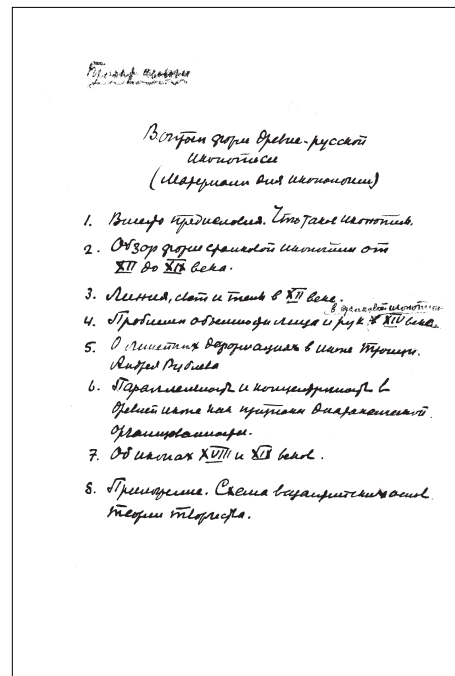 Вопросы форм древне-русской
иконописи
(Материалы для иконологии)
1. Вместо предисловия. Что такое иконопись.
2. Обзор форм станковой иконописи от
XII до XIX века.
3. Линия, свет и тень в XII веке.
в станковой иконописи
4. Проблема объемности лица и рук в XIV веке
5. О линейных деформациях в иконе Троицы.
Андрея Рублева
6. Параллельность и концентричность в
древней иконе как признаки
организованности.
7. Об иконах XVIII и XIX веков.
8. Приложение. Схема византийских основ
теории творчества.